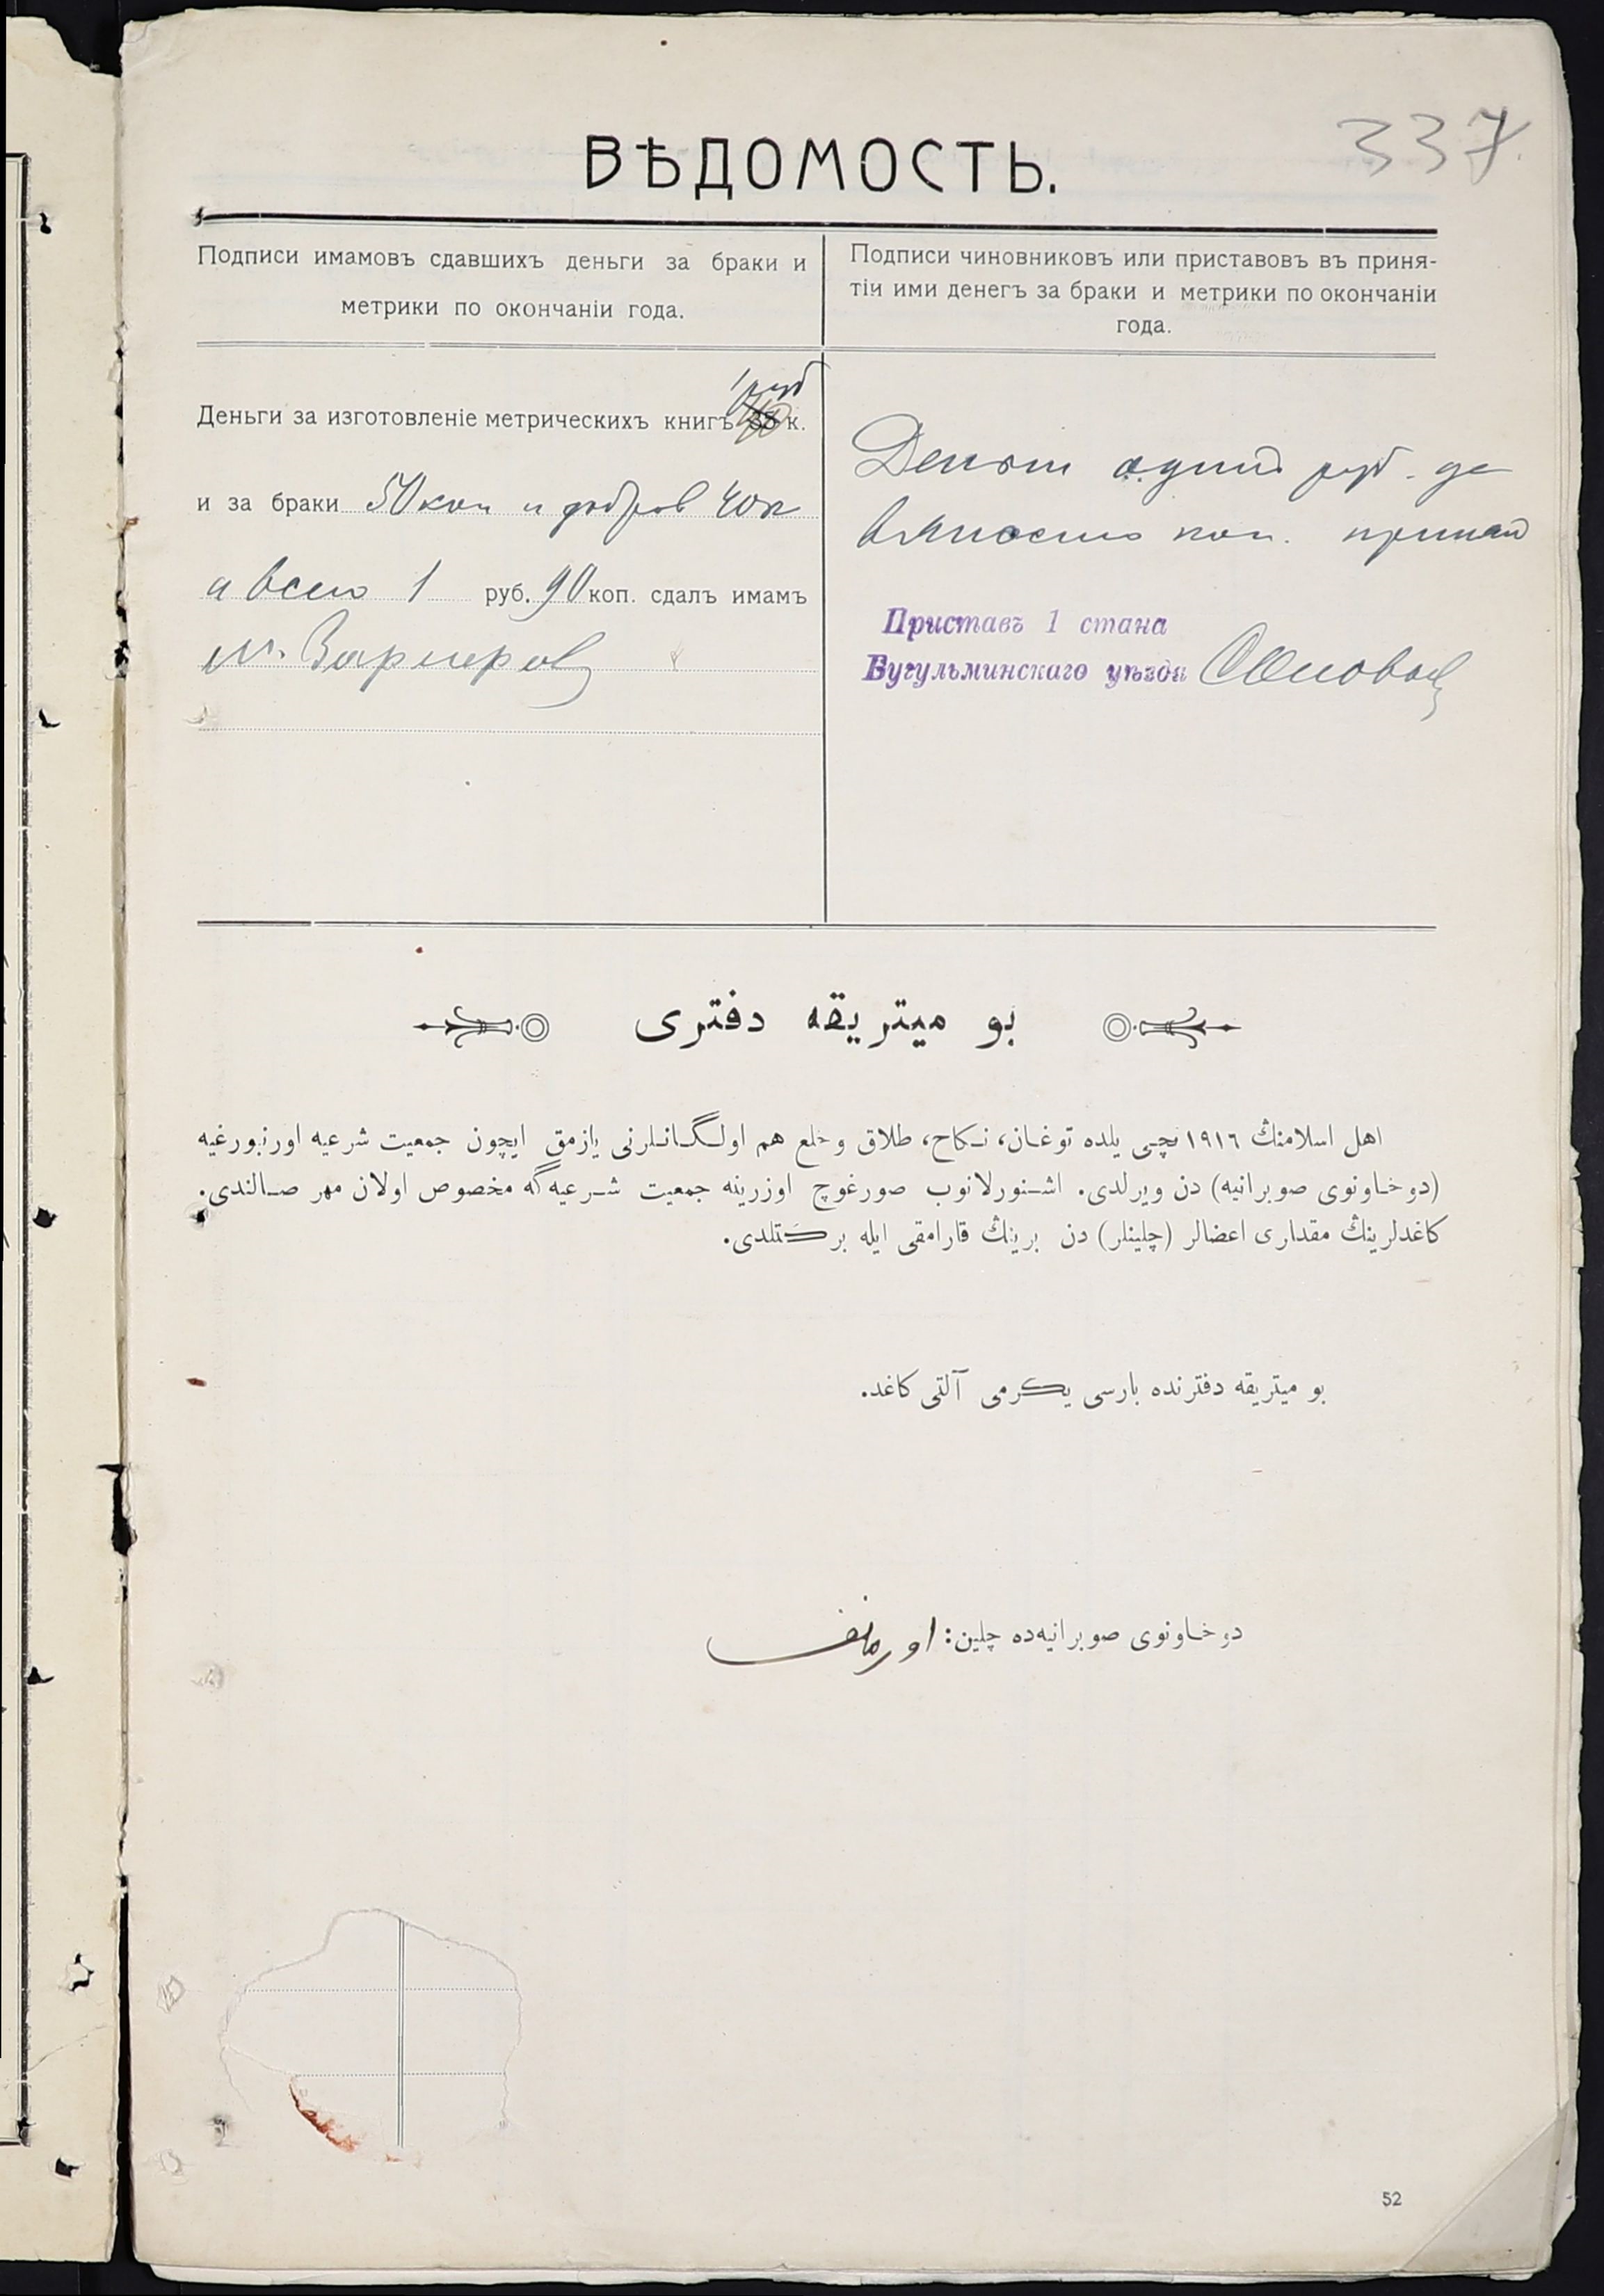 337
ВѢДОМОСТЬ.
Подписи имамовъ сдавшихъ деньги за браки и
метрики по окончаніи года.
Подписи чиновниковъ или приставовъ въ приня-
тіи ими денегъ за браки и метрики по окончаніи
года.
1 руб
Деньги за изготовленіе метрическихъ книгъ к.
и за браки 50 коп и 40 к
а всего 1 руб. 90 коп. сдалъ имамъ
М.
Деньги одинъ руб. де
вяносто коп. принялъ
Приставъ 1 стана
Бугульминскаго уѣзда
بو ميتريقه دفترى
اهل اسلامنڭ ١٩١٦ نچى يلده توغان، نكاح، طلاق و خلع هم اولگانلرنى يازمق ايچون جمعيت شرعيه اورنبورغيه
(دوخاونوى صوبرانيه) دن ويرلدى. اشنورلانوب صورغوچ اوزرينه جمعيت شرعيه‌گه مخصوص اولان مهر صالندى.
كاغدلرينڭ مقدارى اعضالر (چلينلر) دن برينڭ قارامقى ايله بركتلدى.
بو ميتريقه دفترنده بارسى يكرمى آلتى كاغد.
دوخاونوى صوبرانيه‌ده چلين:
52